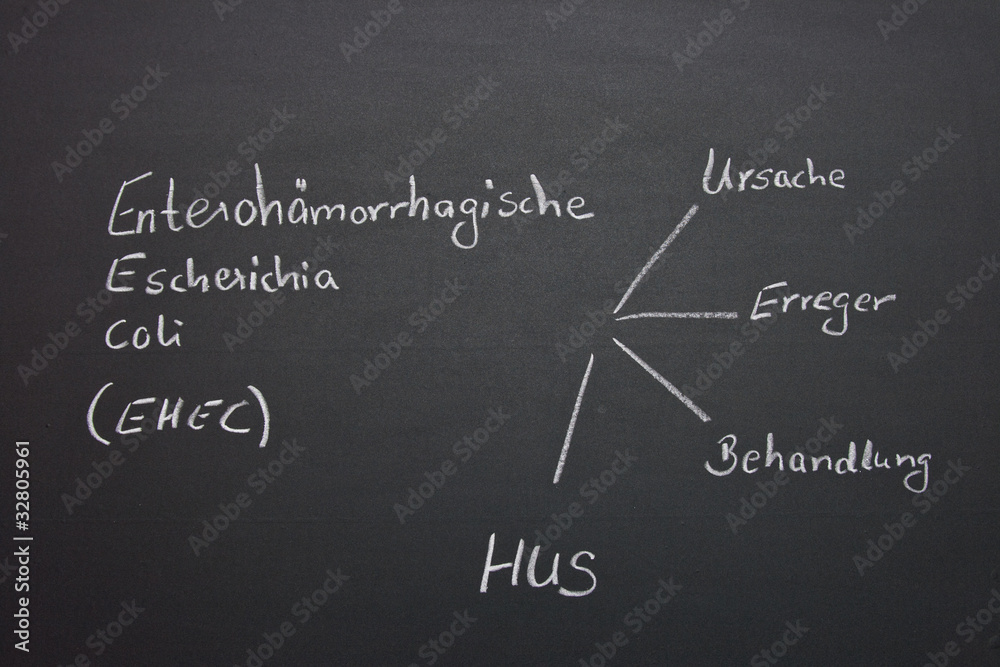 Enterohämorrhagische
Escherichia
Coli
(EHEC)
Ursache
Erreger
Behandlung
HUS
Adobe Stock | #32805961
Adobe Stock